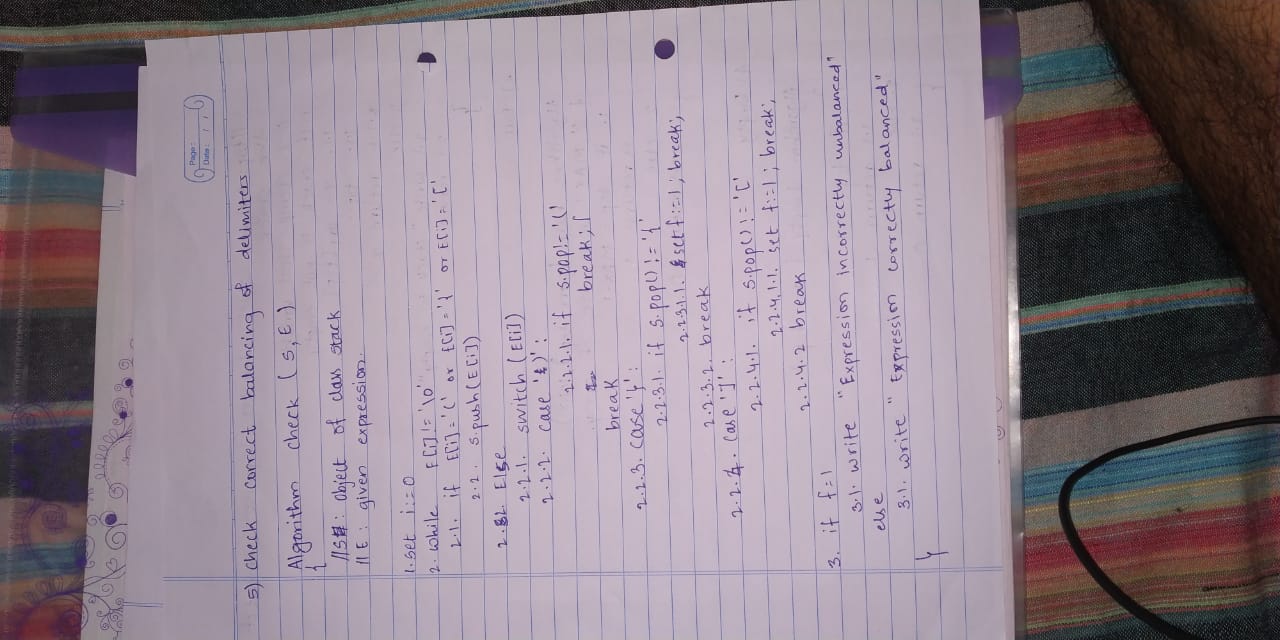 Page:
Date: / /
5) Check correct balancing of delimiters
Algorithm check (S, E)
{
//S: object of class stack
//E: given expression.
1. set i:=0
2. while E[i]!='\0'
2.1. if E[i]='(' or E[i]='{' or E[i]='['
2.2. S.push(E[i])
2.2. Else
2.2.1. switch (E[i])
2.2.2. case ')':
2.2.2.1. if s.pop!='('
break;
break
2.2.3. case '}':
2.2.3.1. if s.pop()!='{'
2.2.3.1.1. set f:=1; break;
2.2.3.2. break
2.2.4. case ']':
2.2.4.1. if s.pop()!='['
2.2.4.1.1. set f:=1; break;
2.2.4.2 break
3. if f=1
3.1. write "Expression incorrectly unbalanced"
else
3.1. write "Expression correctly balanced"
}